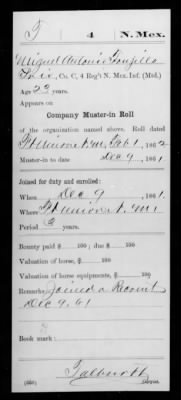 T | 4 | N. Mex.
Miguel Antonio Trujillo
Co. C, 4 Reg't N. Mex. Inf. (Mtd.)
Age 23 years.
Appears on
Company Muster-in Roll
of the organization named above. Roll dated
Ft Union N. M., Feb 1, 1862
Muster-in to date Dec 9, 1861.
Joined for duty and enrolled:
When Dec 9, 1861.
Where Ft Union N. M.
Period 3 years.
Bounty paid $ 100; due $ 100
Valuation of horse, $ 100
Valuation of horse equipments, $ 100
Remarks: Joined a Recruit
Dec 9, 61
Book mark:
Talbutt
Copyist.